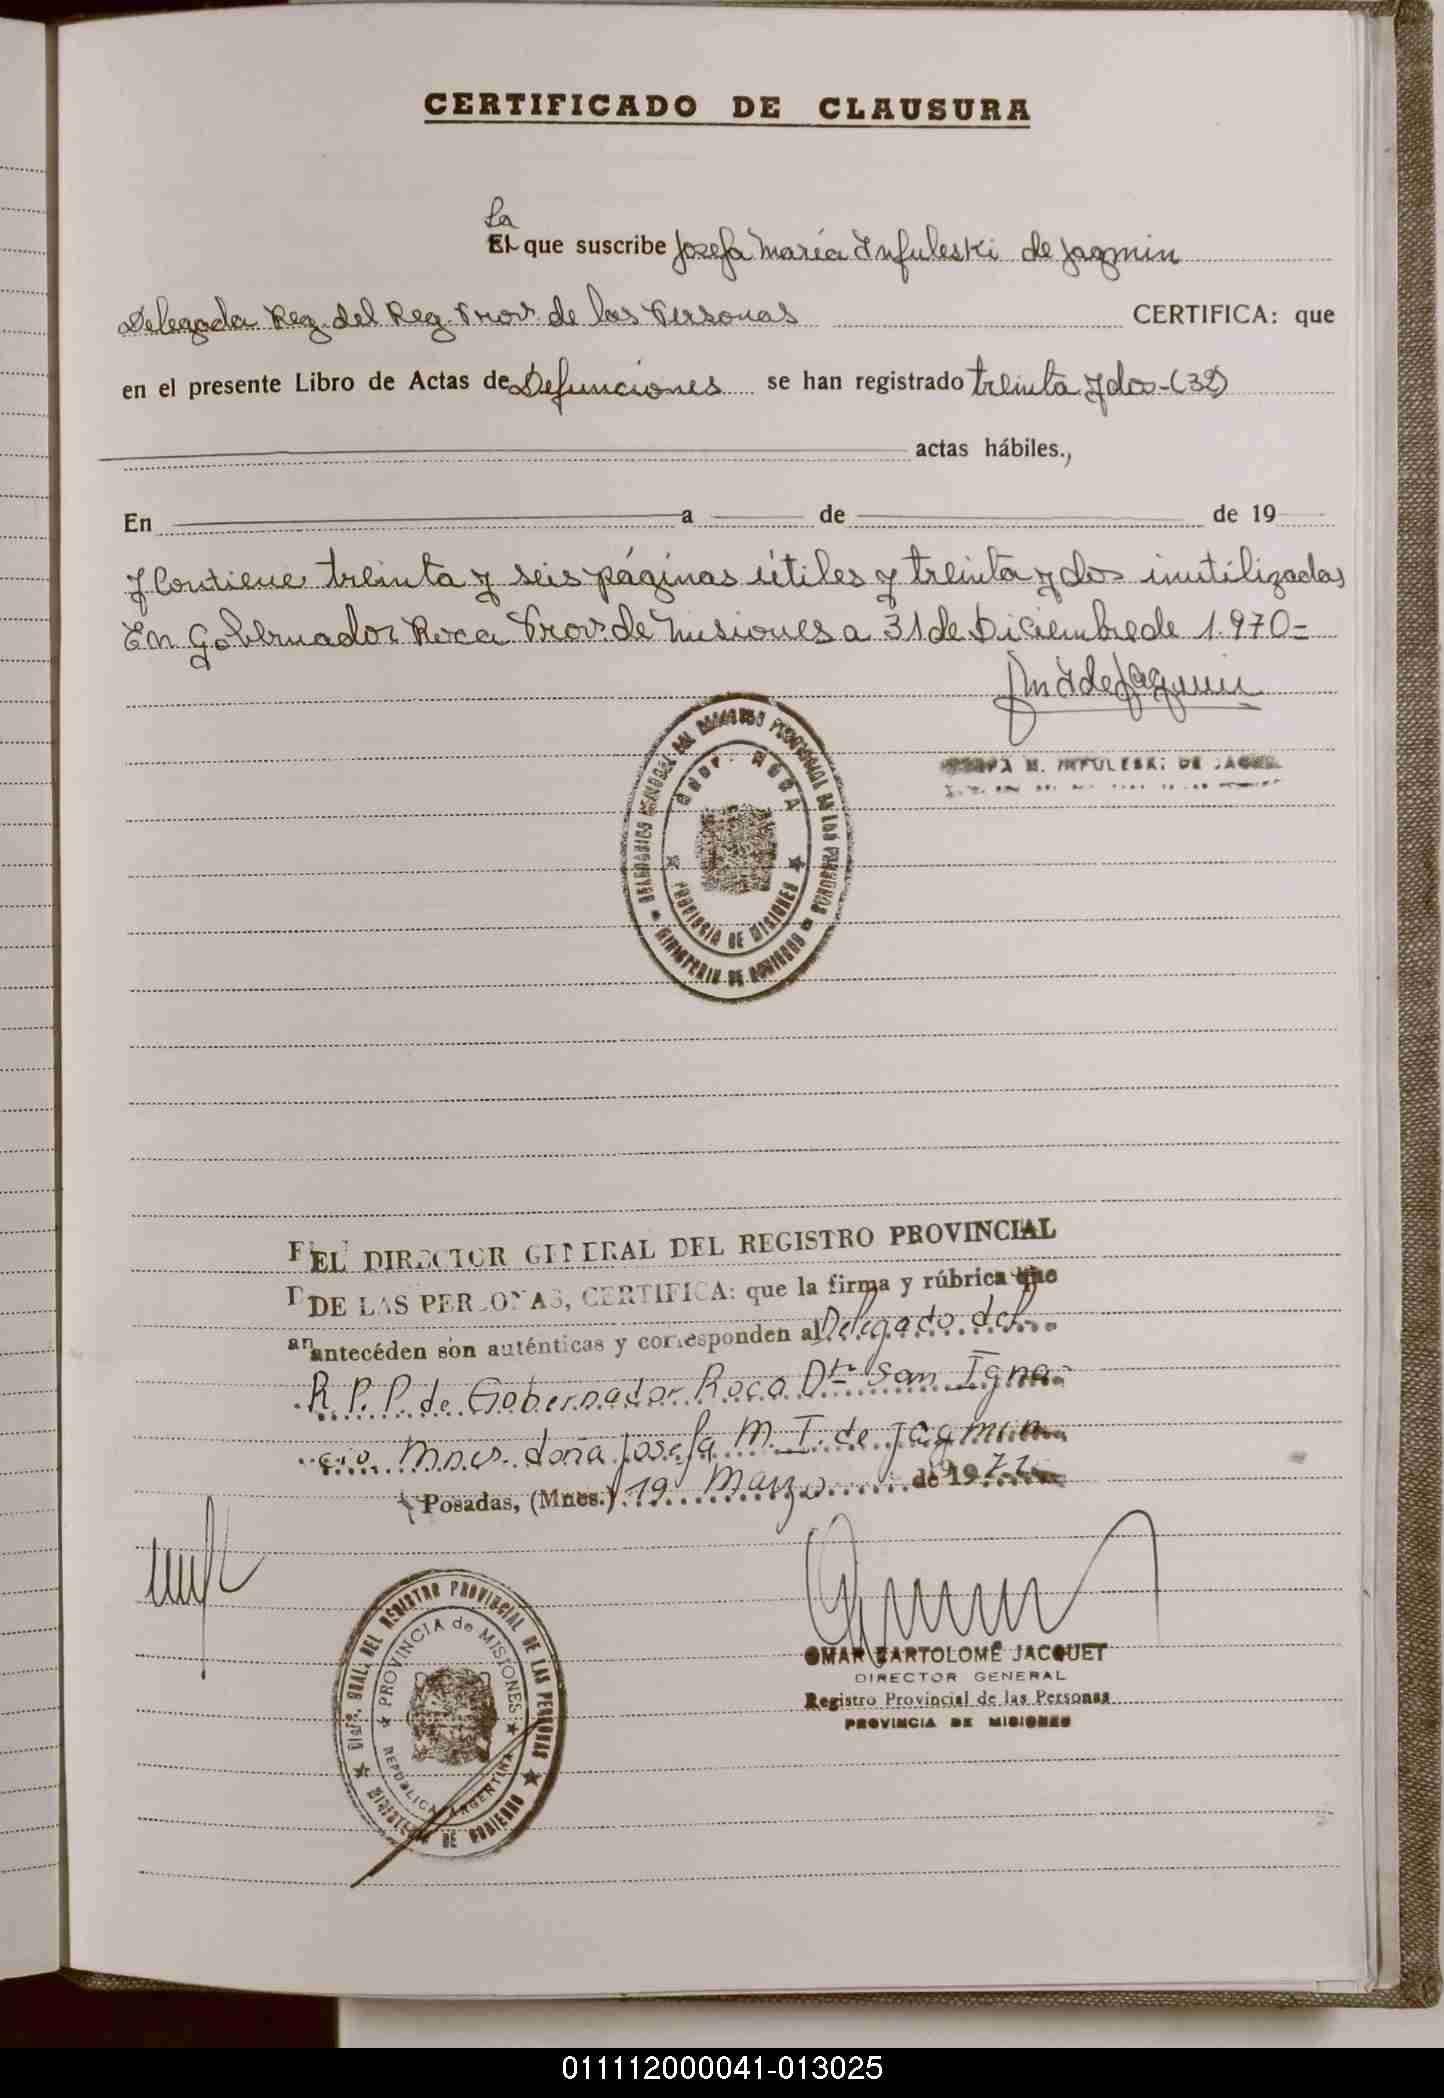 CERTIFICADO DE CLAUSURA
La
El que suscribe Josefa María Infuleski de Jagmin
Delegada Reg. del Reg. Prov. de las Personas CERTIFICA: que
en el presente Libro de Actas de Defunciones se han registrado treinta y dos-(32)
actas hábiles.,
En a de de 19
y Contiene treinta y seis páginas útiles y treinta y dos inutilizadas
En Gobernador Roca Prov. de Misiones a 31 de Diciembre de 1.970=
JOSEFA M. INFULESKI DE JAGMIN
DELEGACION REGIONAL DEL REGISTRO PROVINCIAL DE LAS PERSONAS
GDOR. ROCA
PROVINCIA DE MISIONES
MINISTERIO DE GOBIERNO
EL DIRECTOR GENERAL DEL REGISTRO PROVINCIAL
DE LAS PERSONAS, CERTIFICA: que la firma y rúbrica que
antecéden són auténticas y corresponden al Delegado del
R. P. P. de Gobernador Roca Dto San Igna-
cio Mnes. doña Josefa M. I. de Jagmin
Posadas, (Mnes.) 19 Marzo de 1971
OMAR BARTOLOMÉ JACQUET
DIRECTOR GENERAL
Registro Provincial de las Personas
PROVINCIA DE MISIONES
Dir. GRAL. DEL REGISTRO PROVINCIAL DE LAS PERSONAS
PROVINCIA de MISIONES
REPUBLICA ARGENTINA
MINISTERIO DE GOBIERNO
011112000041-013025